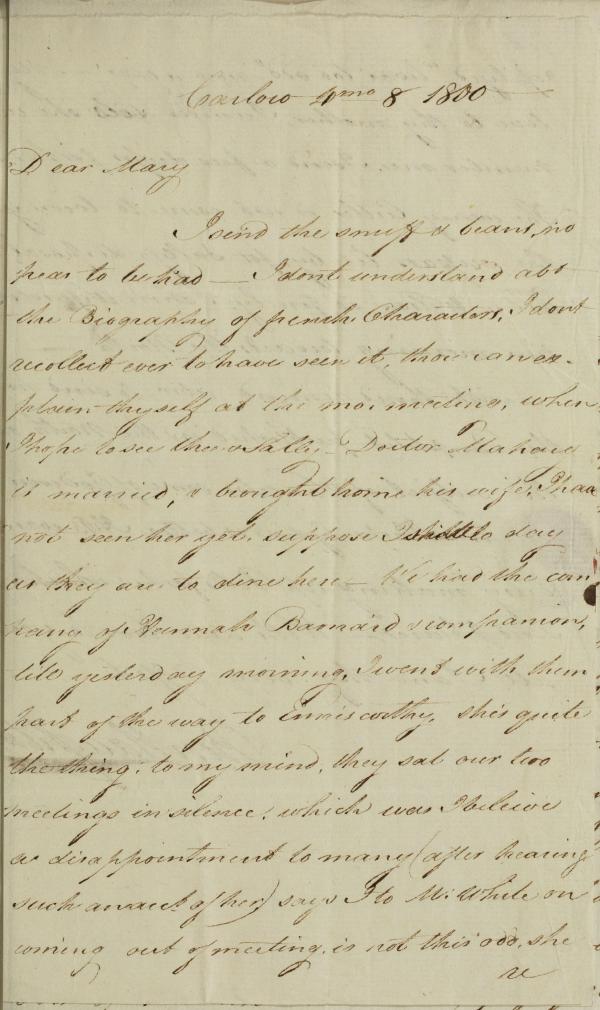 Carlow 4mo 8 1800
Dear Mary
I send the snuff & beans, no
peas to be had — I dont understand abt
the Biography of french Characters, I dont
recollect ever to have seen it, thou can ex-
plain thyself at the mo. meeting, when
I hope to see thee & Sally, Doctor
is married, & brought home his wife, I had
not seen her yet, suppose I shall to day
as they are to dine here — We had the com
pany of Hannah Barnard & companion,
till yesterday morning, I went with them
part of the way to Enniscorthy, she's quite
the thing, to my mind, they sat our two
meetings in silence, which was I beleive
a disappointment to many (after hearing
such an acct of her) says I to M: White on
coming out of meeting, is not this odd, she